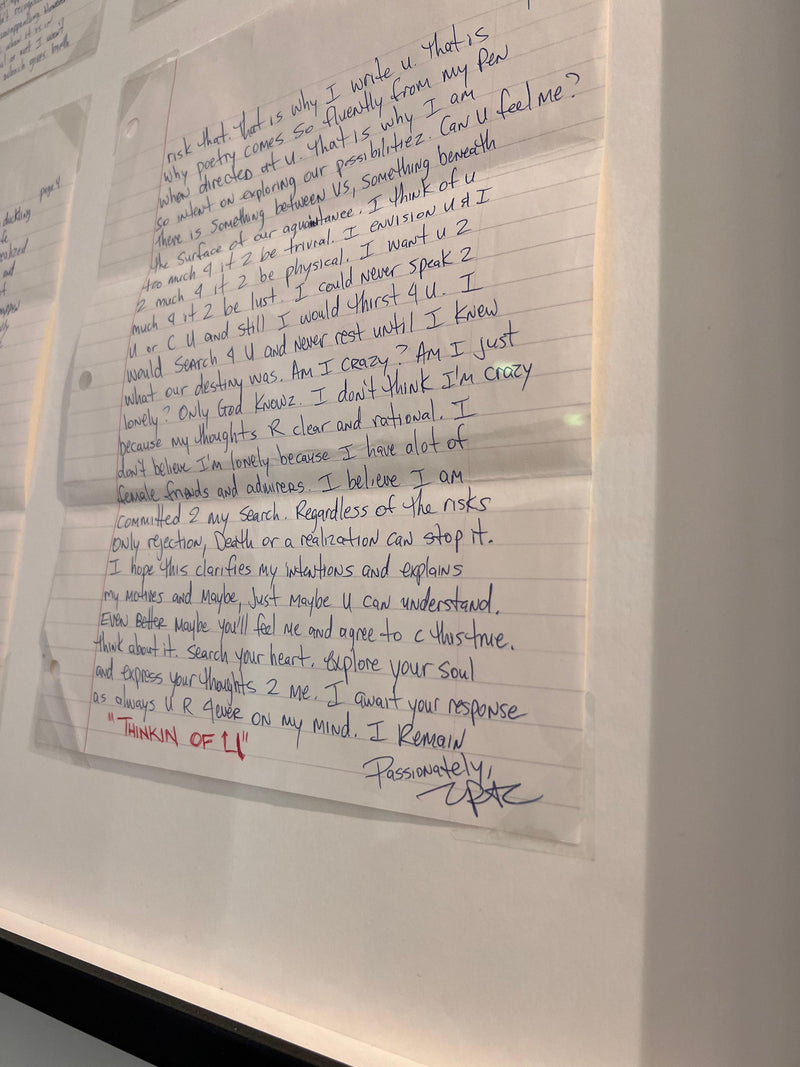 page 4
duckling
ealized
risk that. That is why I write u. That is
why poetry comes so fluently from my Pen
when directed at U. That is why I am
so intent on exploring our possibilitiez. Can U feel me?
There is something between US, something beneath
the surface of our aquaintance. I think of u
too much 4 it 2 be trivial. I envision U & I
2 much 4 it 2 be physical. I want u 2
much 4 it 2 be lust. I could never speak 2
U or C U and still I would thirst 4 U. I
would search 4 U and never rest until I knew
what our destiny was. Am I crazy? Am I just
lonely? Only God Knowz. I don't think I'm crazy
because my thoughts R clear and rational. I
don't believe I'm lonely because I have alot of
female friends and admirers. I believe I am
committed 2 my search. Regardless of the risks
only rejection, Death or a realization can stop it.
I hope this clarifies my intentions and explains
my motives and maybe, just maybe U can understand.
Even Better maybe you'll feel me and agree to c this true.
think about it. Search your heart. explore your soul
and express your thoughts 2 me. I await your response
as always U R 4ever on my mind. I Remain
"THINKIN OF U"
Passionately,
2PAC